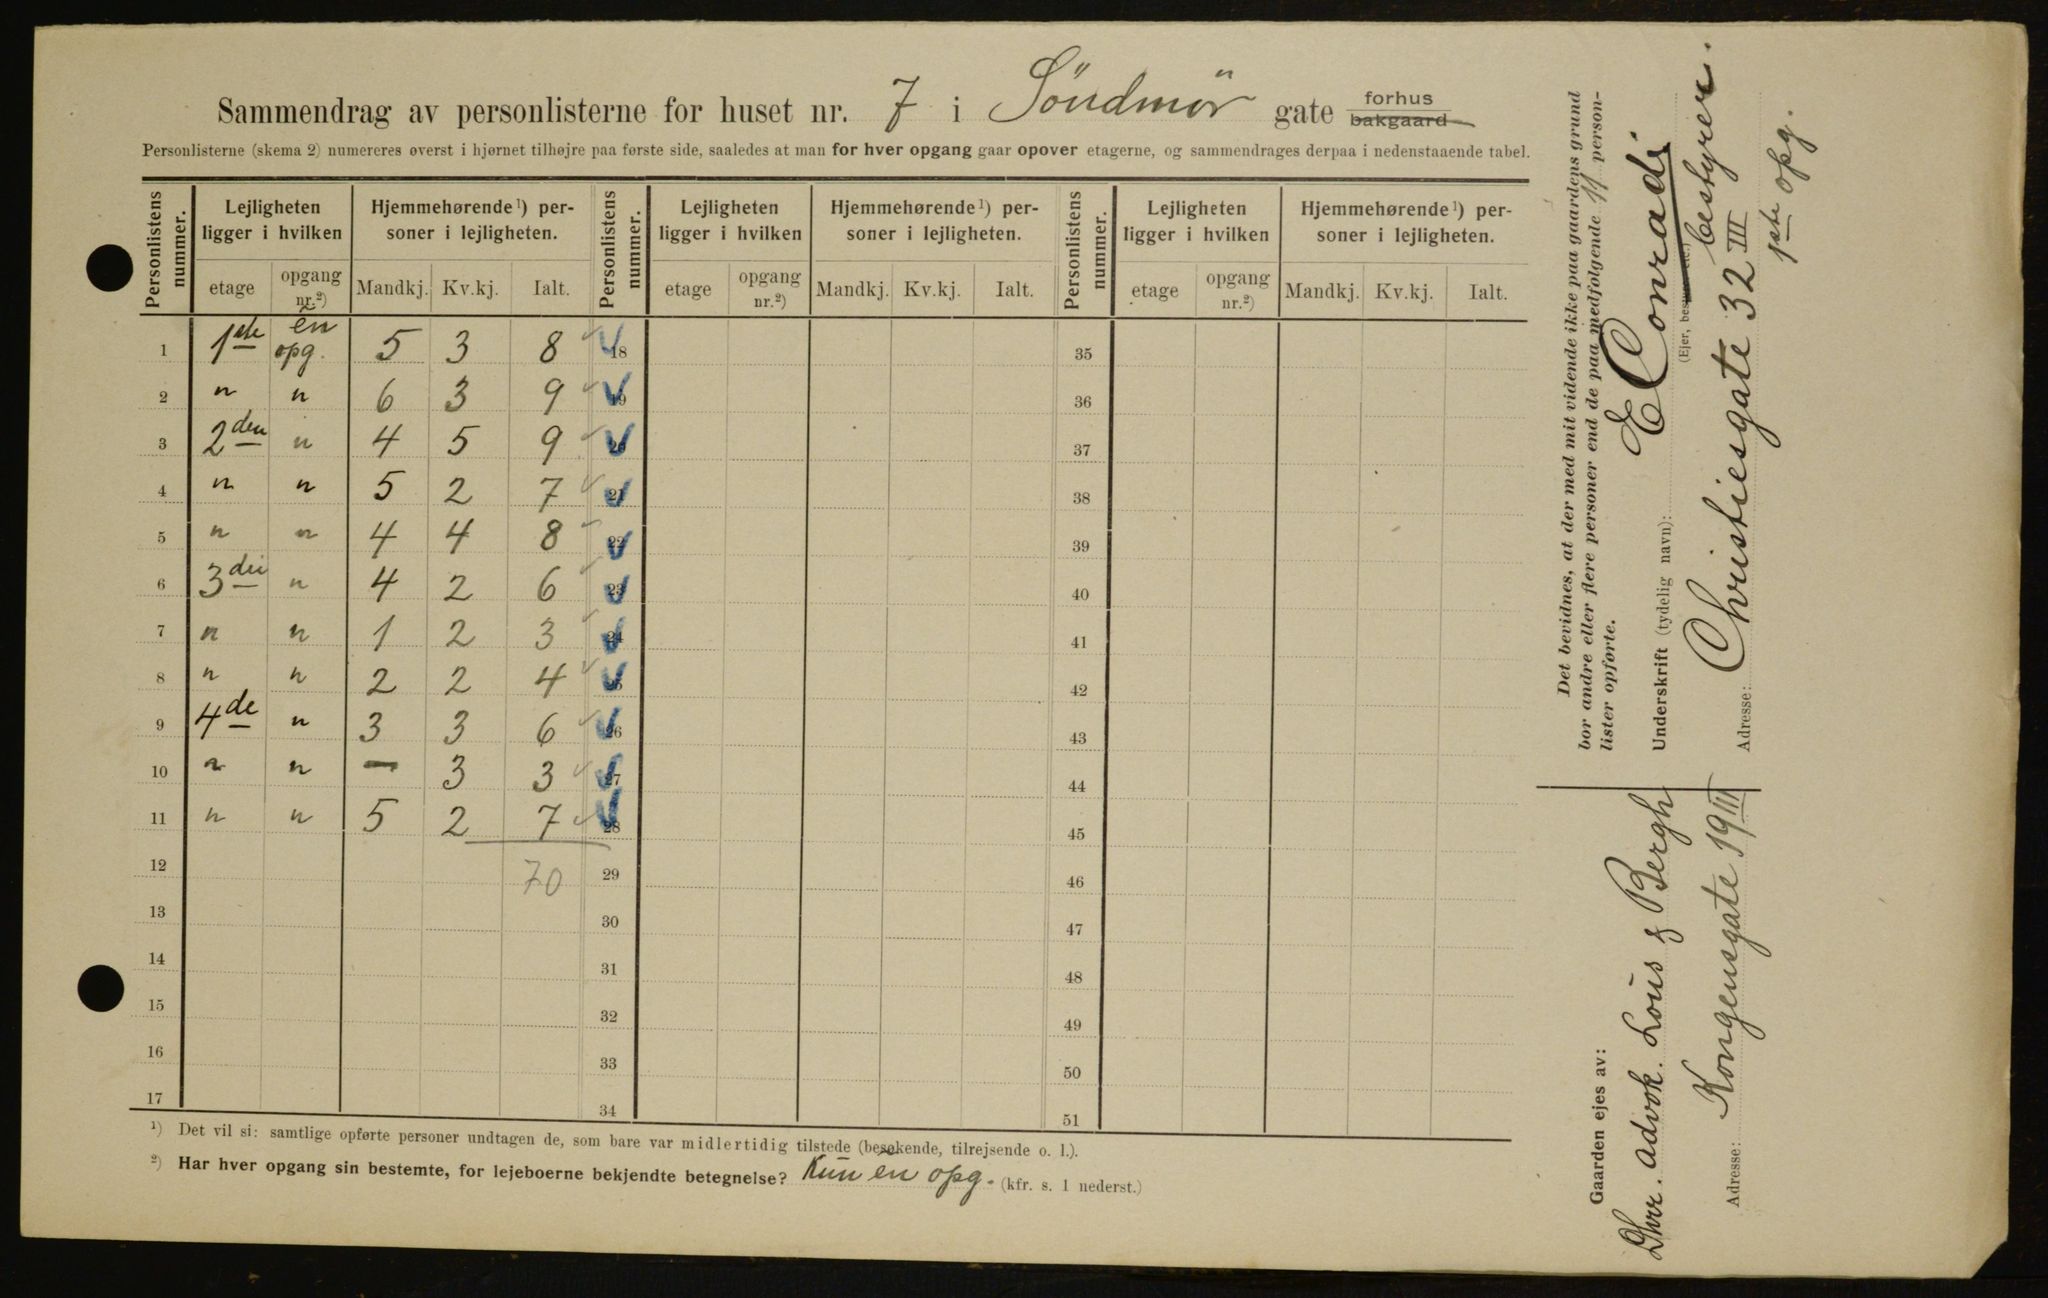 Sammendrag av personlisterne for huset nr. 7 i Söndmör gate forhus bakgaard
Personlisterne (skema 2) numereres øverst i hjørnet tilhøjre paa første side, saaledes at man for hver opgang gaar opover etagerne, og sammendrages derpaa i nedenstaaende tabel.
Personlistens nummer. Lejligheten ligger i hvilken Hjemmehørende ¹) personer i lejligheten. Personlistens nummer. Lejligheten ligger i hvilken Hjemmehørende ¹) personer i lejligheten. Personlistens nummer. Lejligheten ligger i hvilken Hjemmehørende ¹) personer i lejligheten.
etage opgang nr.²) Mandkj. Kv.kj. Ialt. etage opgang nr.²) Mandkj. Kv.kj. Ialt. etage opgang nr.²) Mandkj. Kv.kj. Ialt.
1 1ste én opg. 5 3 8 18 35
2 " " 6 3 9 19 36
3 2den " 4 5 9 20 37
4 " " 5 2 7 21 38
5 " " 4 4 8 22 39
6 3die " 4 2 6 23 40
7 " " 1 2 3 24 41
8 " " 2 2 4 25 42
9 4de " 3 3 6 26 43
10 " " — 3 3 27 44
11 " " 5 2 7 28 45
12 70 29 46
13 30 47
14 31 48
15 32 49
16 33 50
17 34 51
¹) Det vil si: samtlige opførte personer undtagen de, som bare var midlertidig tilstede (besøkende, tilrejsende o. l.).
²) Har hver opgang sin bestemte, for lejeboerne bekjendte betegnelse? Kun én opg. (kfr. s. 1 nederst.)
Det bevidnes, at der med mit vidende ikke paa gaardens grund
bor andre eller flere personer end de paa medfølgende 11 person-
lister opførte.
Underskrift (tydelig navn): E Conradi
(Ejer, bestyrer etc.) bestyrer.
Adresse: Christiesgate 32 III
1ste opg.
Gaarden ejes av:
Dhrr. advok. Lous & Bergh
Adresse: Kongensgate 19 III